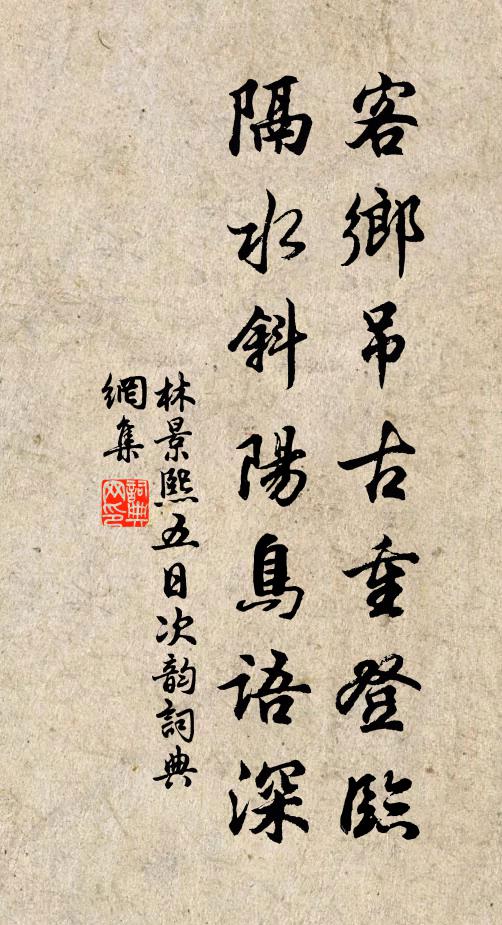 客鄉吊古重登臨
隔水斜陽鳥語深
林景熙五日次韵詞典
網集
詞典
网印